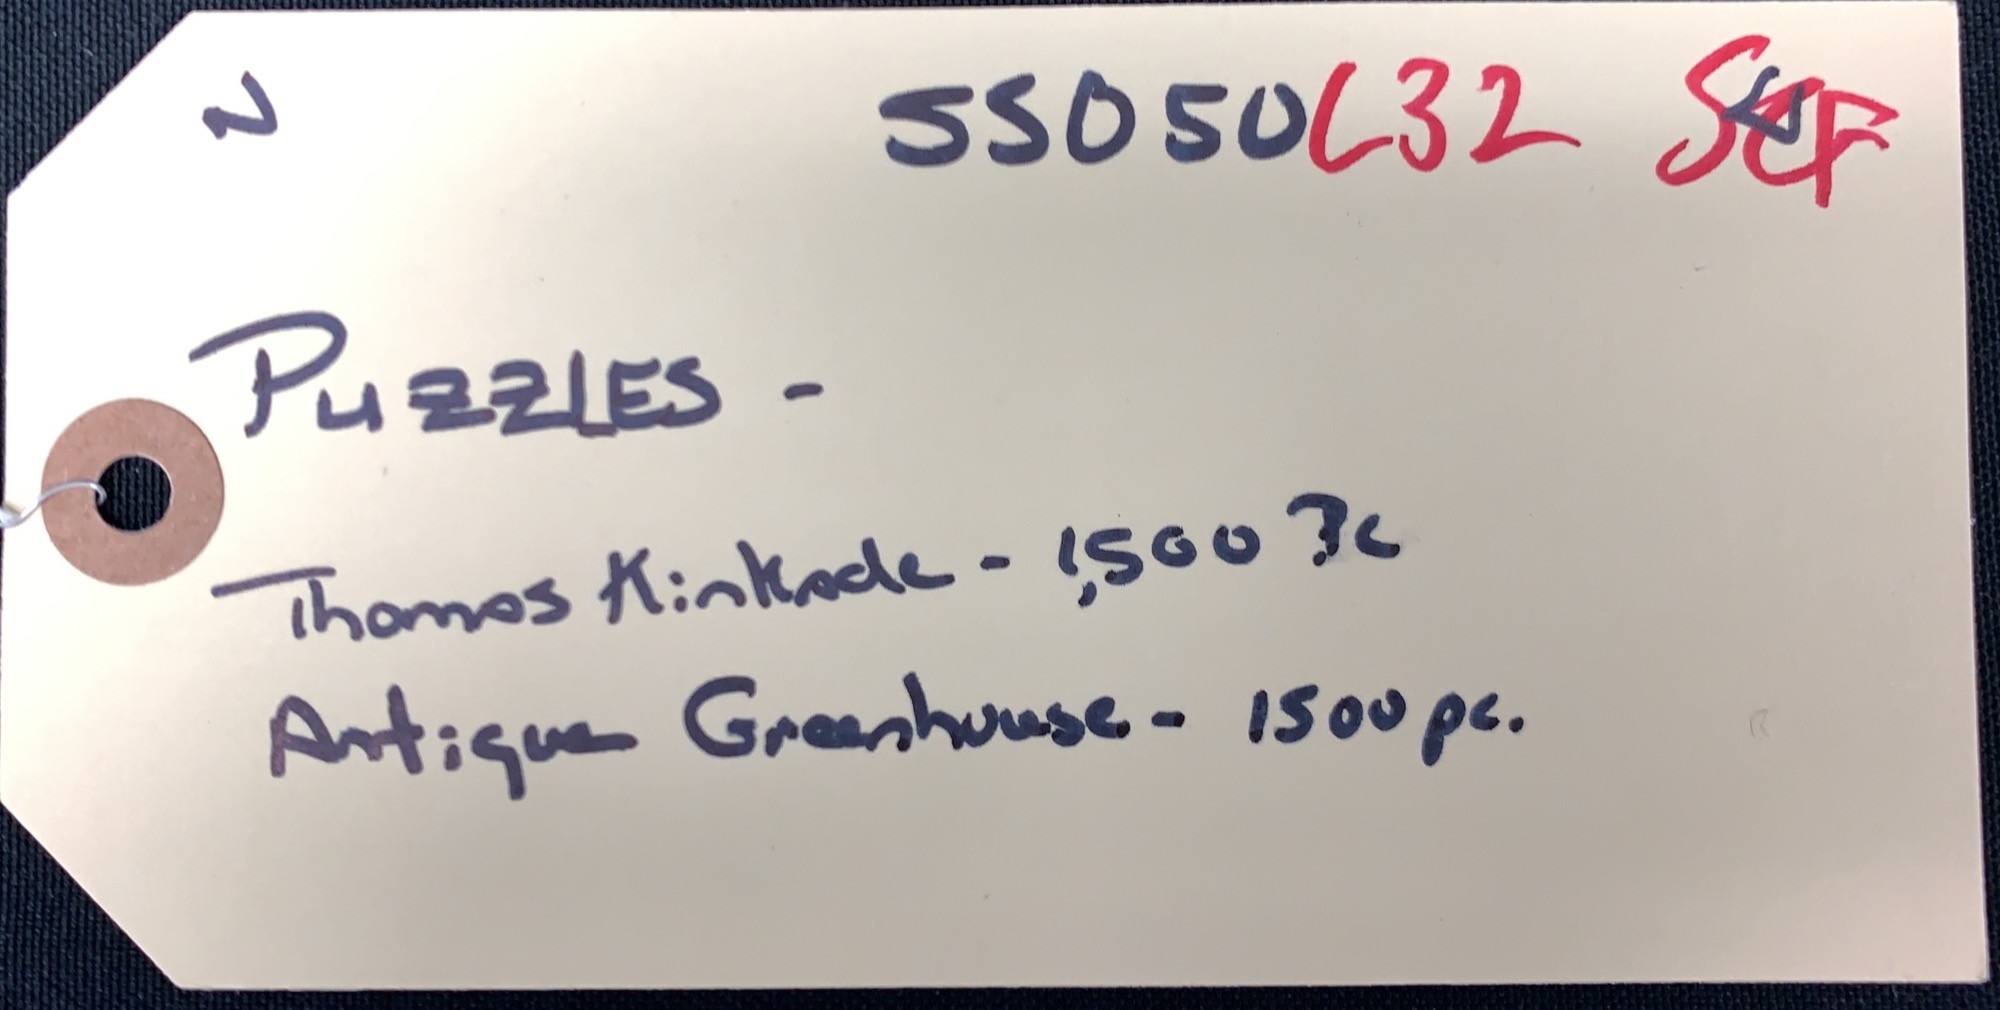 N SS050L32 SCF
PUZZLES -
Thomas Kinkade - 1,500 Pc
Antique Greenhouse - 1500 pc.